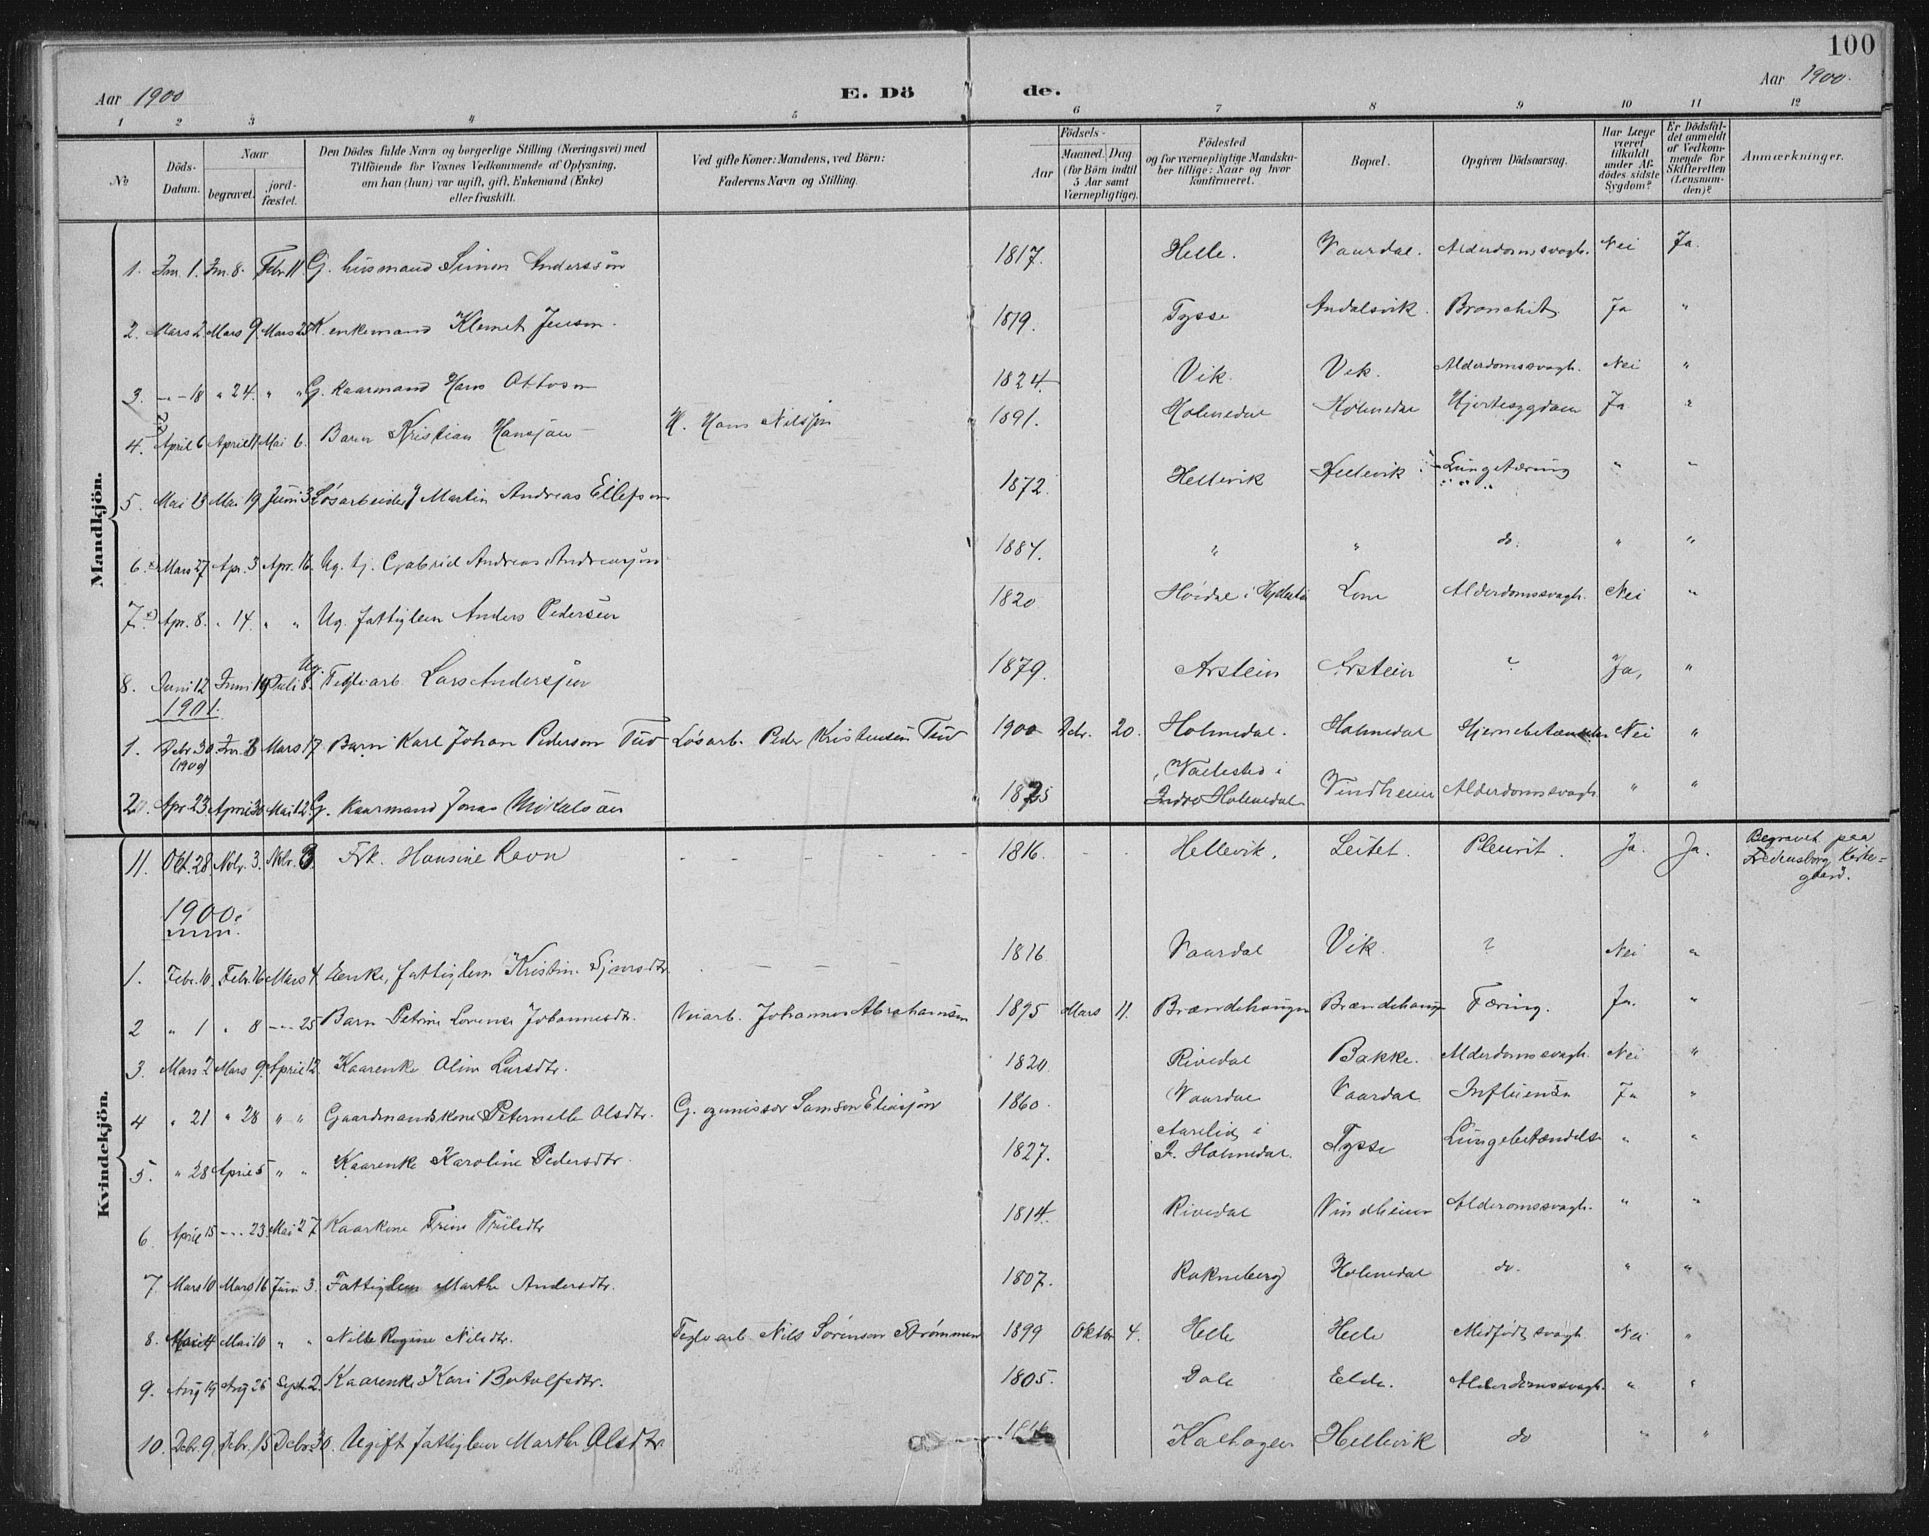 100
Aar 1900
E. Dö de.
Aar 1900.
1 2 3 4 5 6 7 8 9 10 11 12
No
Döds-Datum.
Naar begravet. jordfæstet.
Den Dödes fulde Navn og borgerlige Stilling (Næringsvei) med Tilföiende for Voxnes Vedkommende af Oplysning, om han (hun) var ugift, gift, Enkemand (Enke) eller fraskilt.
Ved gifte Koner: Mandens, ved Börn: Faderens Navn og Stilling.
Födsels-Aar Maaned. Dag (for Börn indtil 5 Aar samt Værnepligtige).
Födested og for værnepligtige Mandskaber tillige: Naar og hvor konfirmeret.
Bopæl.
Opgiven Dödsaarsag.
Har Læge været tilkaldt under Afdödes sidste Sygdom?
Er Dödsfaldet anmeldt af Vedkommende for Skifteretten (Lensmanden)?
Anmærkninger.
Mandkjön.
1. Jan. 1. Jan. 8. Febr. 11 G. husmand Simon Anderssön 1817. Helle. Vaardal. Alderdomssvagh. Nei Ja.
2. Mars 2. Mars 9. Mars 25 K. enkemand Klemet Jensen. 1819. Tysse Andalsvik. Bronchit Ja "
3. - - 18 " 24. " " G. Kaarmand Hans Ottosen 1824. Vik. Vik. Alderdomssvagh. Nei "
4. April 6 April 11 Mai 6. Barn Kristian Hansjön H. Hans Nilsson 1891. Holmedal Holmedal Hjertesygdom Ja "
5. Mai 13 Mai 19 Juni 3. Løsarbeider Martin Andreas Ellefsen 1872. Hellevik Hellevik Lungetæring " "
6. Mars 27 Apr. 3 Apr. 16. Ug. tj. Gabriel Andreas Andreasjön 1884. " " do. " "
7. Apr. 8. " 14. " " Ug. fattiglem Anders Pedersen 1820 Høidal i Hyllestad Lone Alderdomssvagh. Nei "
8. Juni 12 Juni 19 Juli 8. Ug. Teglarb. Lars Andersjön 1879. Arstein Arstein ? Ja, "
1901.
1. Debr. 30 (1900) Jan. 8 Mars 17. Barn Karl Johan Pederson Tuv Løsarb. Peder Kristensen Tuv 1900 Debr. 20. Holmedal. Holmedal Hjernebetændelse Nei "
2. Apr. 23 April 30 Mai 12. G. Kaarmand Jonas Mikalsön 1825 Vallestad i Indre Holmedal Vindheim Alderdomssvagh " "
Kvindekjön.
11. Okt. 28 Nobr. 3. Nobr. 3. Frk. Hansine Ravn - - - - - - 1816. - - Hellevik. Leitet. Pleurit. Ja. Ja. Begravet paa Fredensborg Kirkegaard.
1900.
1. Febr. 10. Febr. 16 Mars 4. Enke, fattiglem Kristine 1816 Vaardal Vik. ? Nei "
2 " 1 " 8 - - 25 Barn Petrine Lovense Johannesdtr. Veiarb. Johannes Abrahamsen 1895 Mars 11. Brændehaugen Brændehaug Tæring. Ja. "
3. Mars 2 Mars 9. April 12. Kaarenke Oline Larsdtr. 1820. Rivedal Bakke. Alderdomssvagh. Nei "
4 " 21 " 28 " " Gaardmandskone Peternelle Olsdtr. G. Samson Eliasjön 1860. Vaardal Vaardal Influensa Ja "
5. " 28 April 5 " " Kaarenke Karoline Pedersdtr. 1827. Aarelid i I. Holmedal. Tysse Lungebetændelse " "
6. April 15 - - - 23. Mai 27 Kaarkone Trine 1814. Rivedal Vindheim Alderomssvagh. " "
7. Mars 10 Mars 16 Juni 3. Fattiglem Marthe Andersdtr. 1807. Rakneberg Holmedal do. " "
8. Mai 4 Mai 10 " " Nille Regine Nilsdtr. Teglarb. Nils Sörenson Strømmen 1899 Oktbr 4. Helle Helle Medfødt svagh Nei "
9. Aug 19 Aug 26 Sept. 2. Kaarenke Kari Botolfsdtr. 1805. Dale Elde. Alderdomssvagh. " "
10. Debr. 9. Debr. 15 Debr. 30. Ugift fattiglem Marthe Olsdtr Kalhagen Hellevik do " "